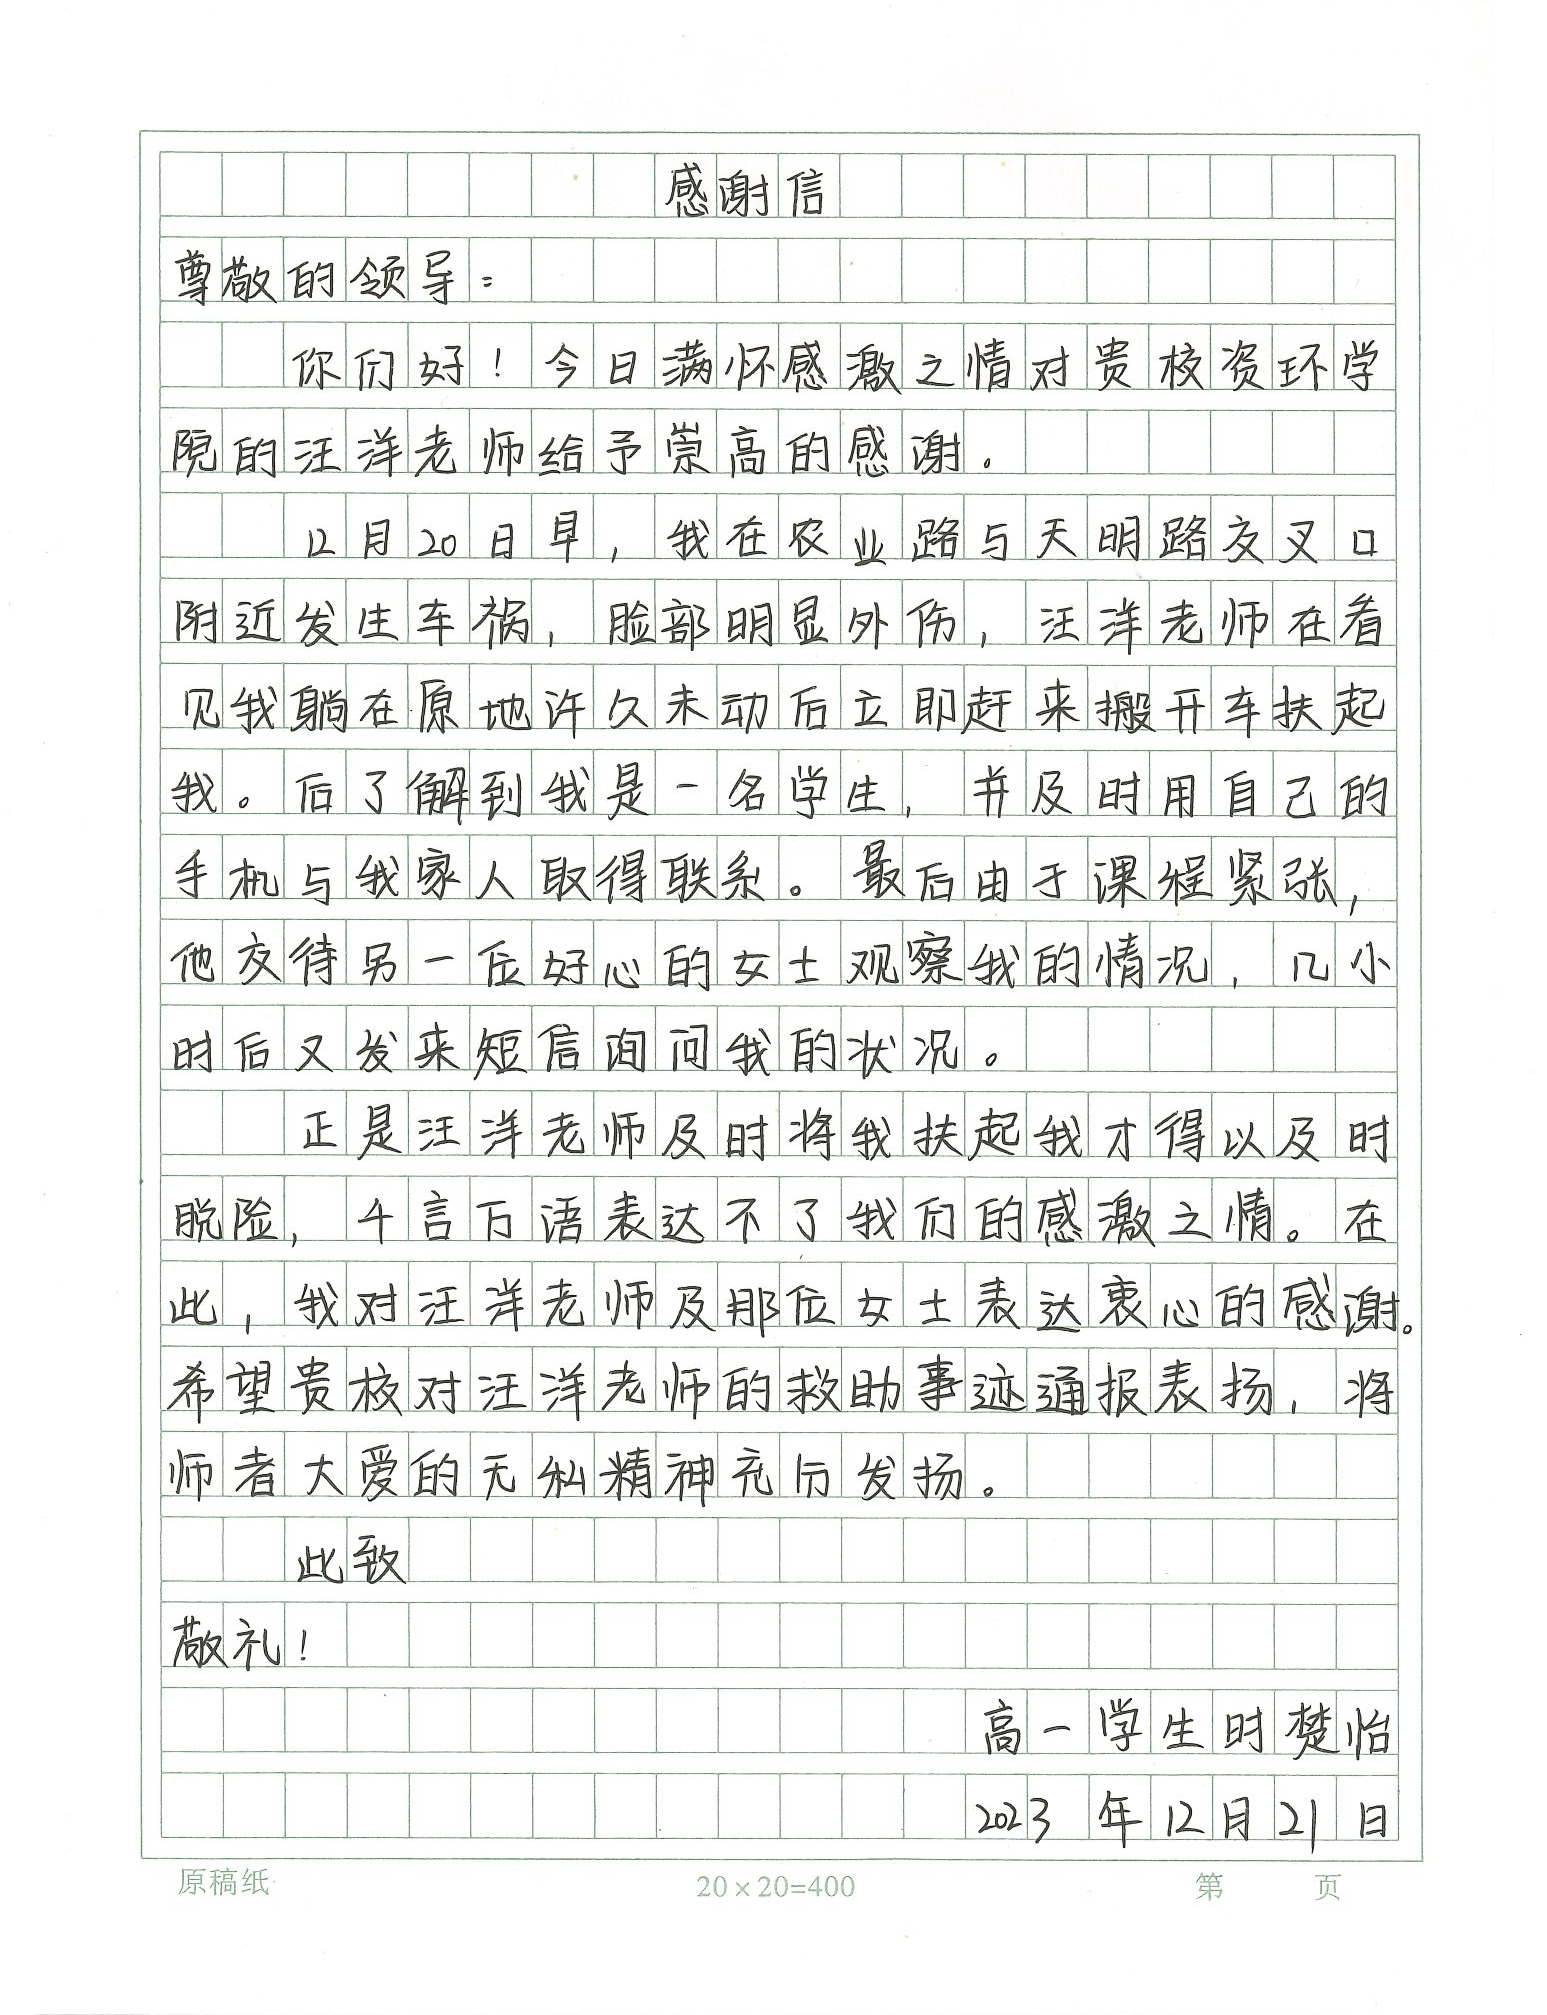 感谢信
尊敬的领导：
你们好！今日满怀感激之情对贵校资环学
院的汪洋老师给予崇高的感谢。
12月20日早，我在农业路与天明路交叉口
附近发生车祸，脸部明显外伤，汪洋老师在看
见我躺在原地许久未动后立即赶来搬开车扶起
我。后了解到我是一名学生，并及时用自己的
手机与我家人取得联系。最后由于课程紧张，
他交待另一位好心的女士观察我的情况，几小
时后又发来短信询问我的状况。
正是汪洋老师及时将我扶起我才得以及时
脱险，千言万语表达不了我们的感激之情。在
此，我对汪洋老师及那位女士表达衷心的感谢。
希望贵校对汪洋老师的救助事迹通报表扬，将
师者大爱的无私精神充分发扬。
此致
敬礼！
高一学生时楚怡
2023年12月21日
原稿纸 20×20=400 第 页